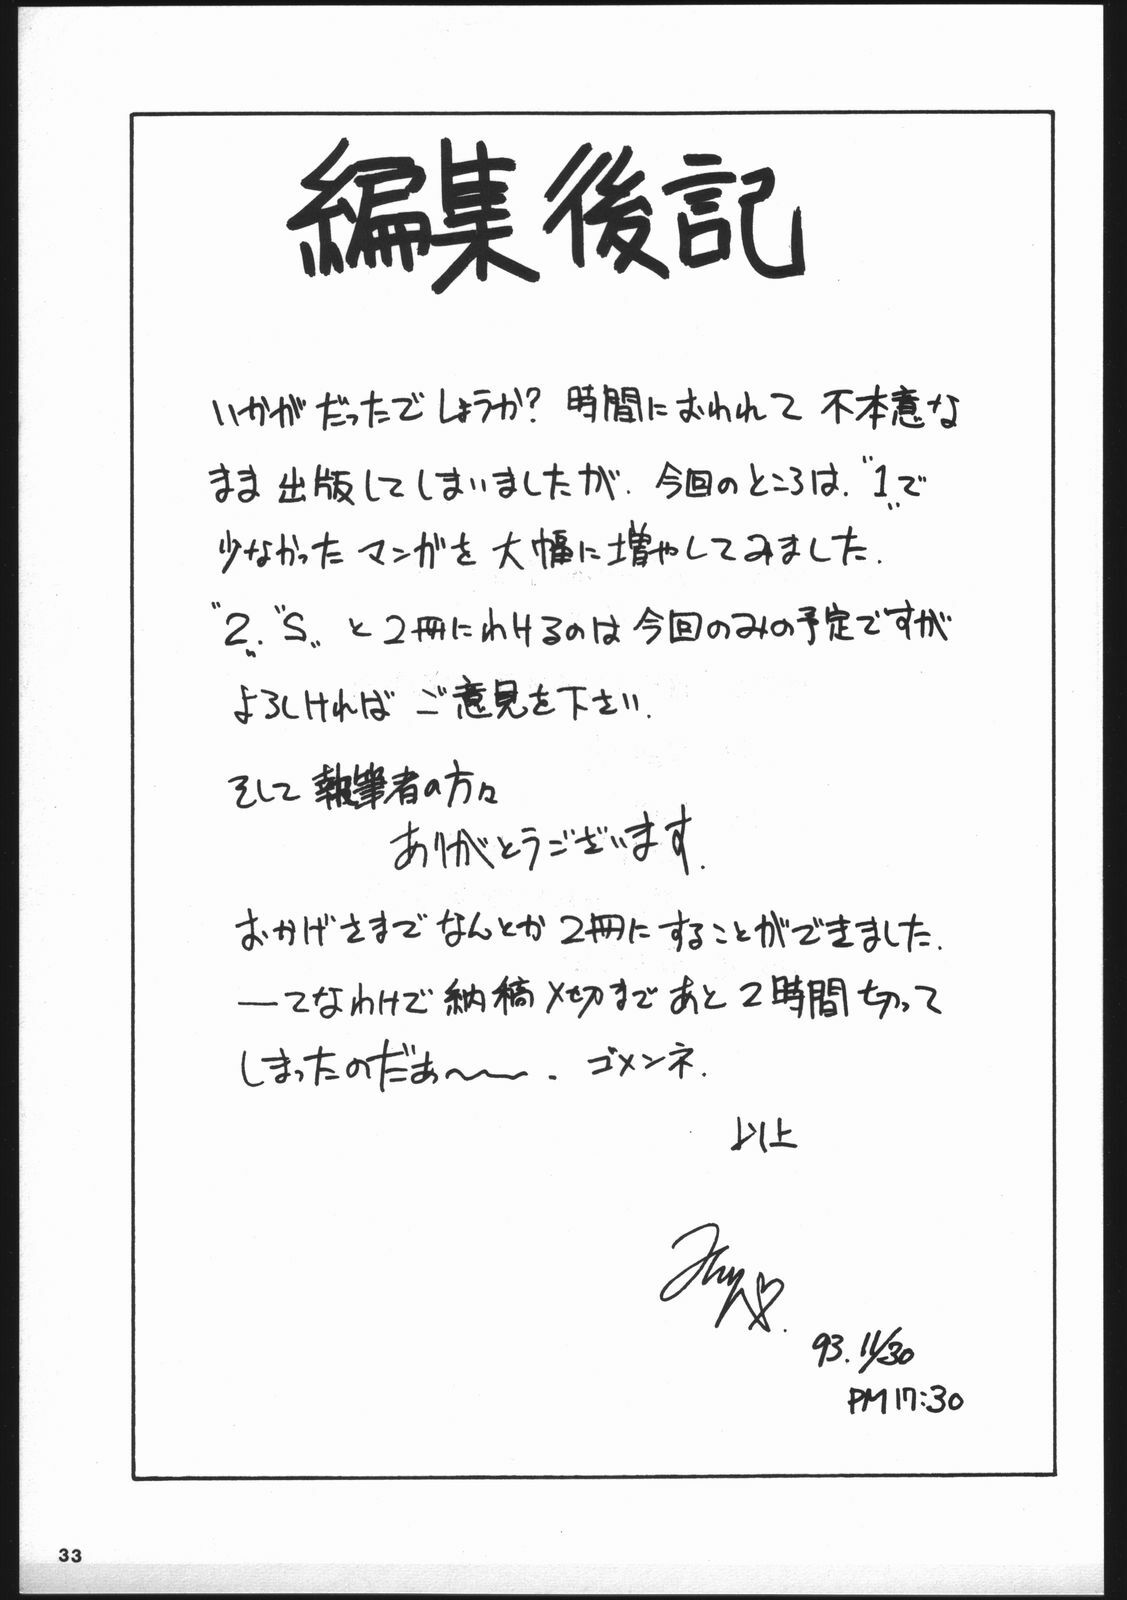 編集後記
いかがだったでしょうか? 時間におわれて 不本意な
まま 出版してしまいましたが. 今回のところは. "1"で
少なかった マンガを 大幅に増やしてみました.
"2". "S" と 2冊にわけるのは 今回のみの予定ですが
よろしければ ご意見を下さい.
そして 執筆者の方々
ありがとうございます.
おかげさまで なんとか 2冊にすることができました.
―てなわけで 納稿〆切まで あと 2時間 切って
しまったのだぁ〜〜. ゴメンネ.
以上
93. 11/30
PM 17:30
33